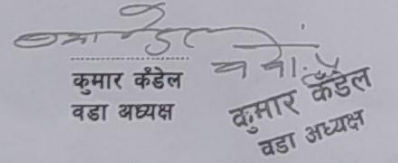 कुमार कँडेल
वडा अध्यक्ष
कुमार कँडेल
वडा अध्यक्ष